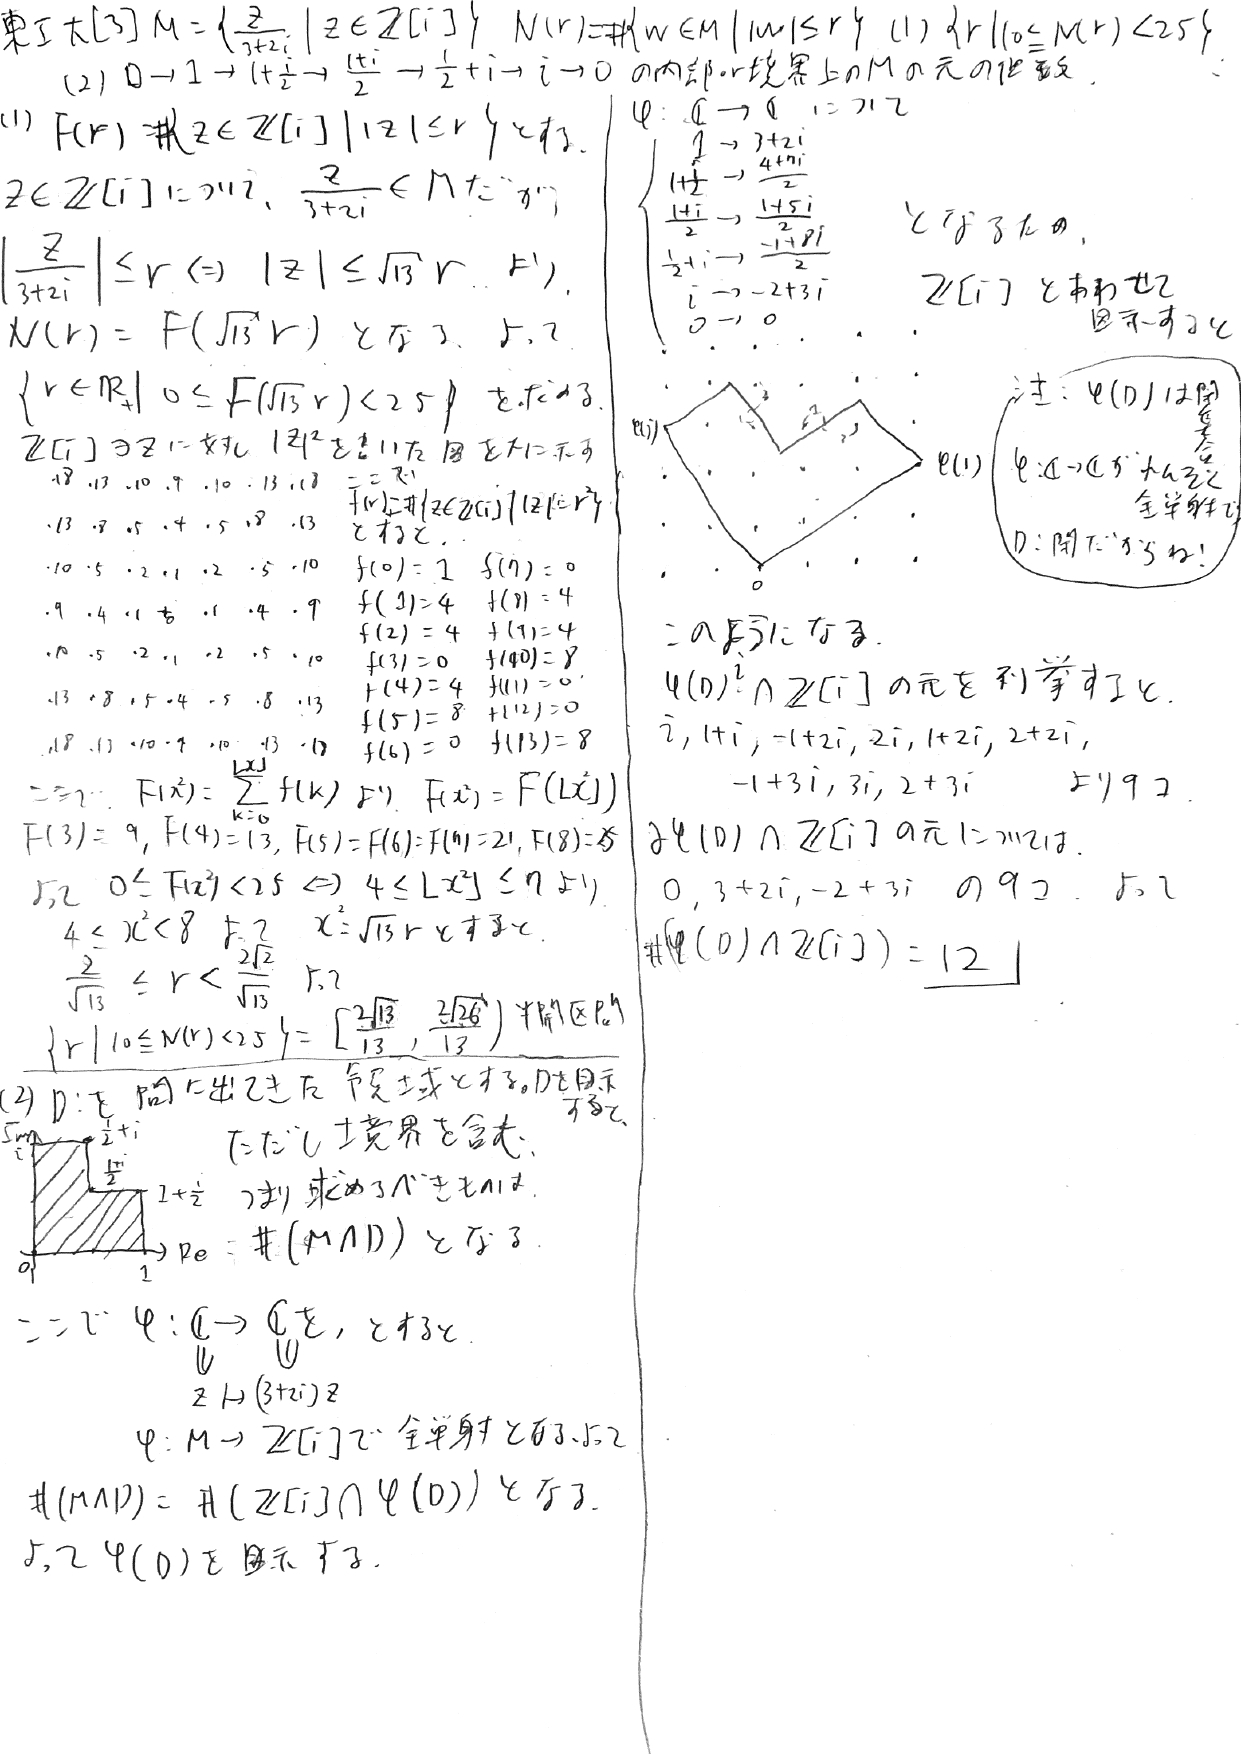 東工大[3] M = {z/(3+2i) | z∈ℤ[i]} N(r)=#{w∈M | |w|≤r} (1) {r | 10≦N(r)<25}
(2) 0→1→1+i/2→(1+i)/2→1/2+i→i→0 の内部or境界上のMの元の個数.
(1) F(r)=#{z∈ℤ[i] | |z|≤r}とする.
z∈ℤ[i]について、 z/(3+2i) ∈ M だから
|z/(3+2i)| ≤ r ⇔ |z| ≤ √13 r より,
N(r) = F(√13 r) となる、よって
{r∈ℝ₊ | 0≤F(√13 r)<25} をもとめる.
ℤ[i]∋zに対し |z|²を書いた図を下に示す
.18 .13 .10 .9 .10 .13 .18
.13 .8 .5 .4 .5 .8 .13
.10 .5 .2 .1 .2 .5 .10
.9 .4 .1 .0 .1 .4 .9
.10 .5 .2 .1 .2 .5 .10
.13 .8 .5 .4 .5 .8 .13
.18 .13 .10 .9 .10 .13 .18
ここで
f(r)=#{z∈ℤ[i] | |z|=r²}
とすると.
f(0)=1 f(7)=0
f(1)=4 f(8)=4
f(2)=4 f(9)=4
f(3)=0 f(10)=8
f(4)=4 f(11)=0
f(5)=8 f(12)=0
f(6)=0 f(13)=8
ここで F(x²)= Σ[k=0, ⌊x⌋] f(k) より F(x²)=F(⌊x²⌋)
F(3)=9, F(4)=13, F(5)=F(6)=F(7)=21, F(8)=25
よって 0≤F(x²)<25 ⇔ 4≤⌊x²⌋≤7 より
4≤x²<8 よって x²=√13 r とすると.
2/√13 ≤ r < 2√2/√13 よって
{r | 10≦N(r)<25} = [2√13/13, 2√26/13) 半開区間
(2) D:を問に出てきた領域とする。Dを図示
すると、
Im
i
1/2+i
(1+i)/2
1+i/2
Re
0
1
ただし境界を含む.
つまり求めるべきものは.
= #(M∩D) となる.
ここで φ: ℂ→ℂを, とすると.
z ↦ (3+2i)z
φ: M→ℤ[i]で 全単射となる.よって
#(M∩D) = #(ℤ[i]∩φ(D)) となる.
よってφ(D)を図示する.
φ: ℂ→ℂ について
1→3+2i
1+i/2→(4+7i)/2
(1+i)/2→(1+5i)/2
1/2+i→(-1+8i)/2
i→-2+3i
0→0
となるため,
ℤ[i] とあわせて
図示すると
φ(i)
φ(1)
0
注: φ(D)は閉集合
φ:ℂ→ℂが
全単射で
D:閉だからね!
このようになる.
φ(D)ⁱ∩ℤ[i] の元を列挙すると.
i, 1+i, -1+2i, 2i, 1+2i, 2+2i,
-1+3i, 3i, 2+3i より9コ.
∂φ(D)∩ℤ[i] の元については.
0, 3+2i, -2+3i の9コ よって
#(φ(D)∩ℤ[i]) = 12